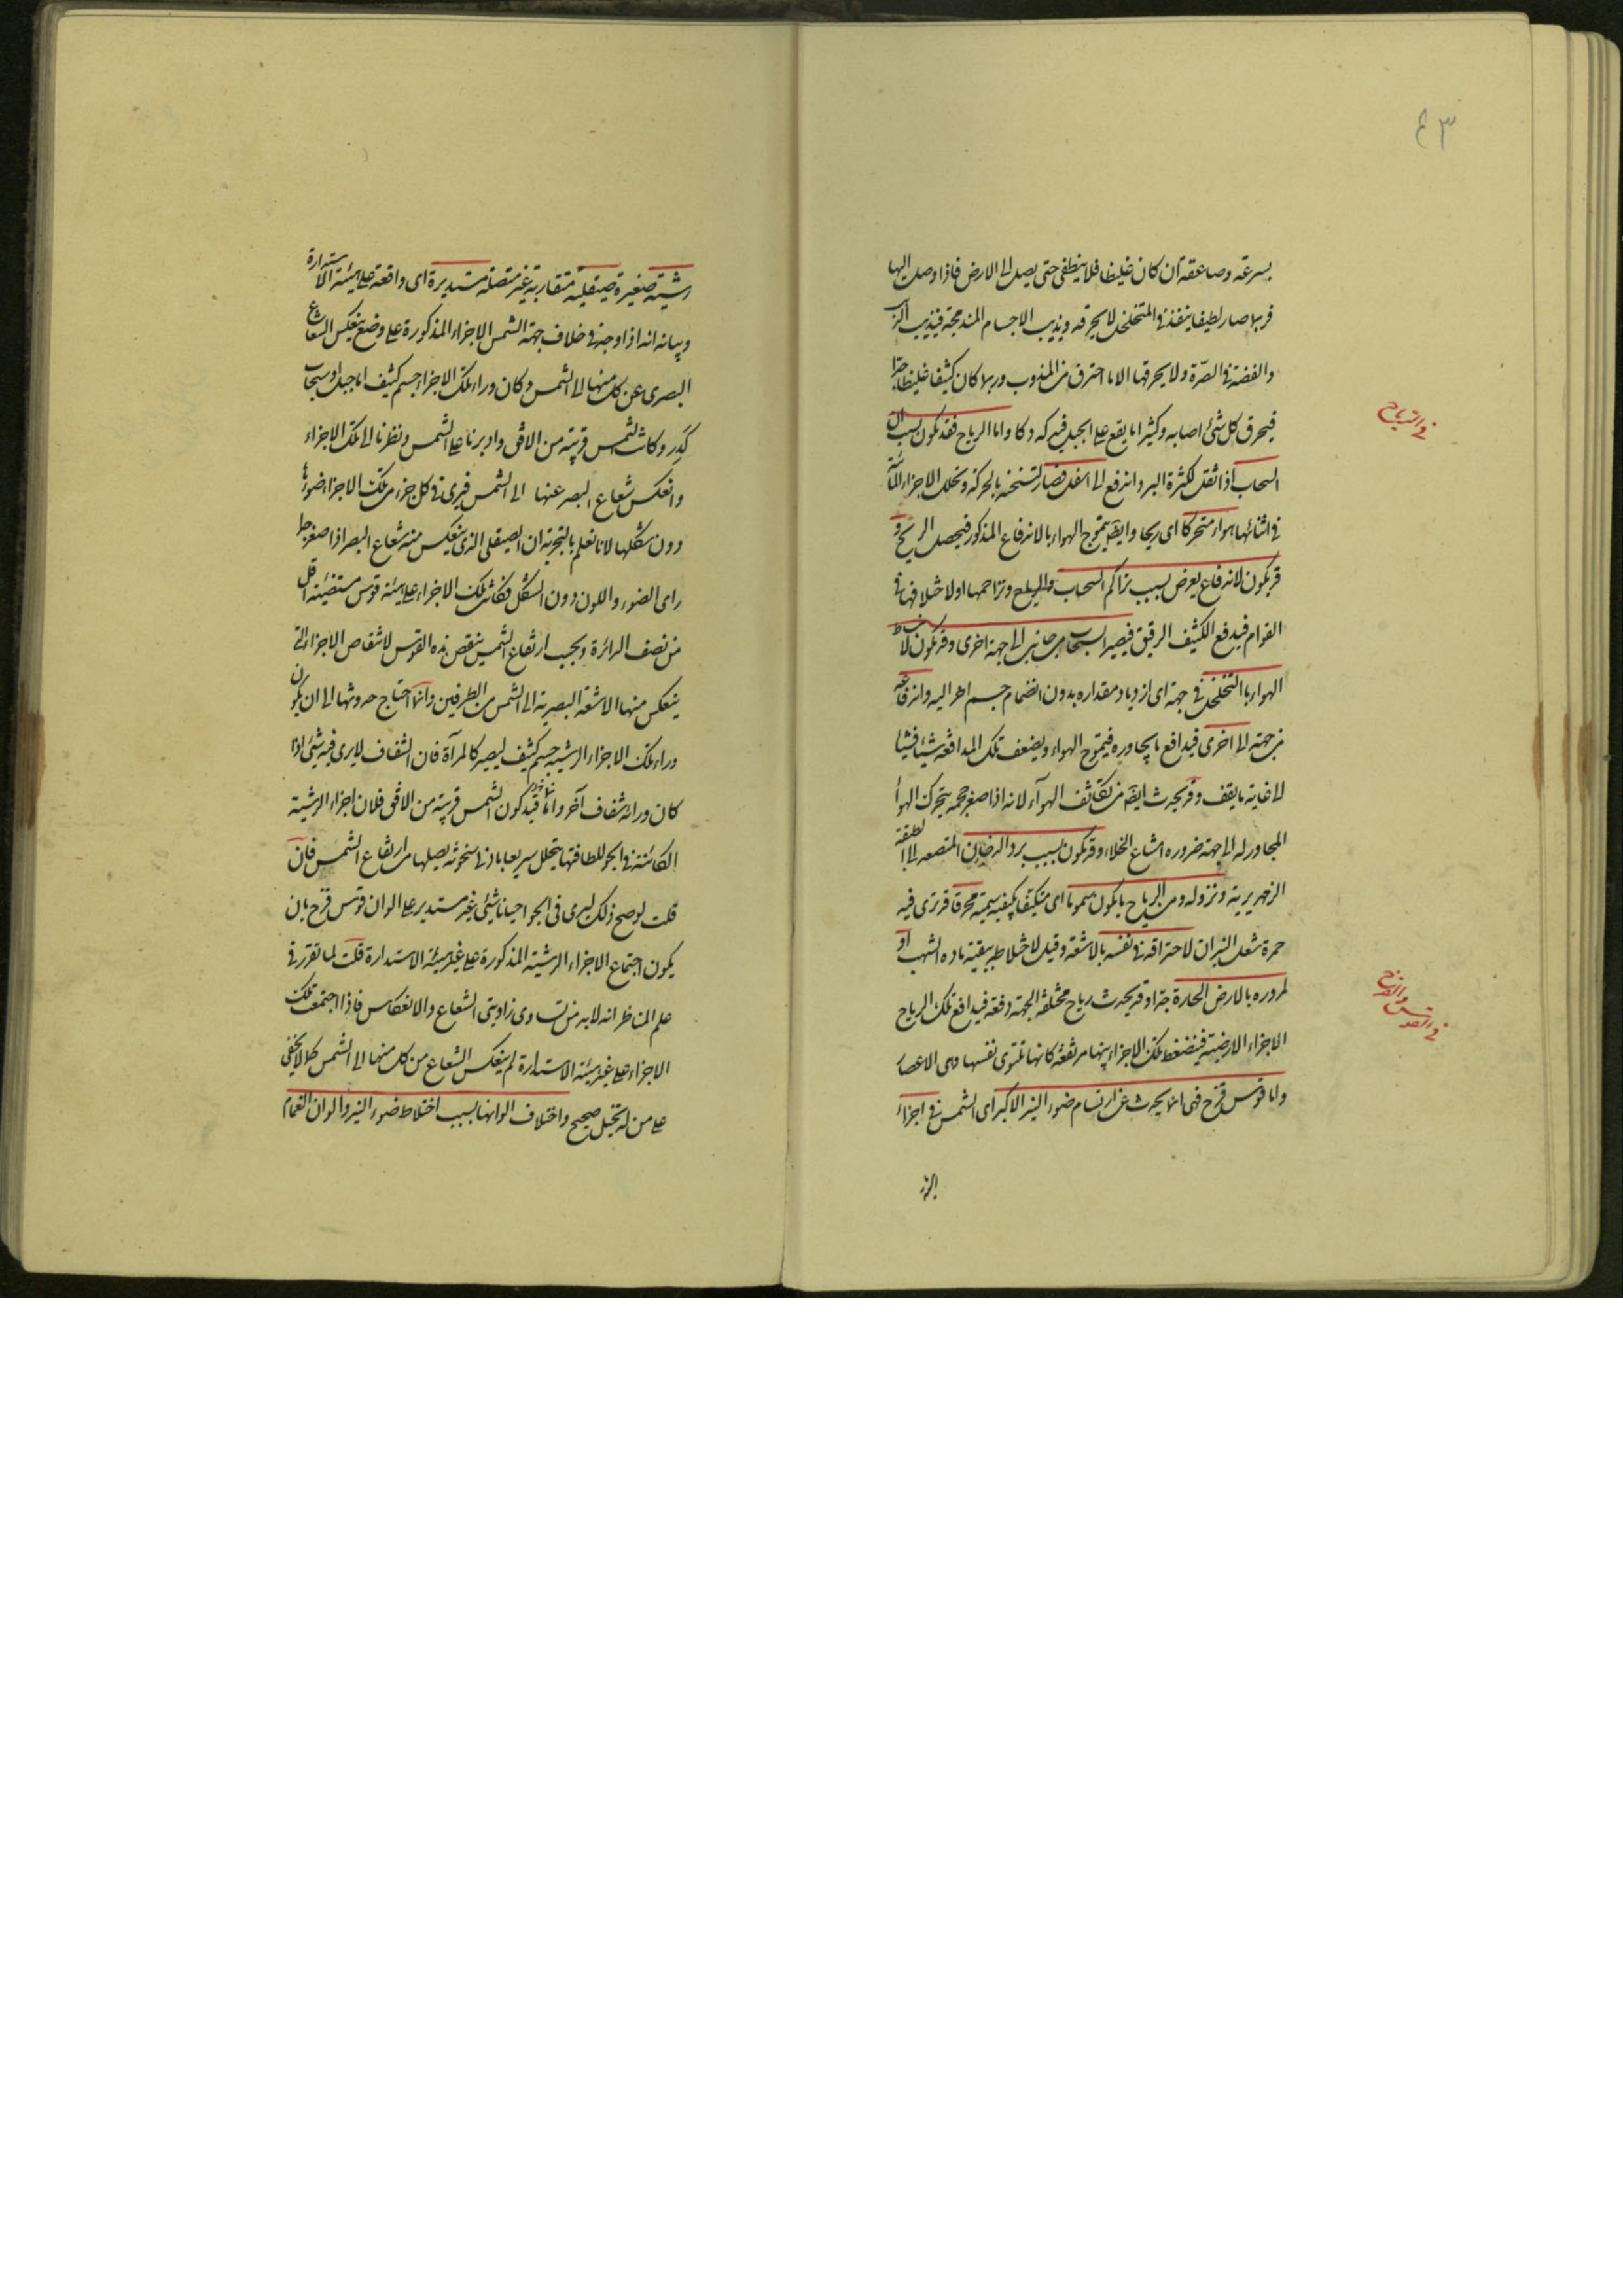 ٤٣
بسرعة وصاعقة ان كان غليظا فلا ينطفى حتى يصل الى الارض فاذا وصل اليها
فربما صار لطيفا ينفذ فى المتخلخل لا يحرقه ويذيب الاجسام المندمجة فيذيب الذهب
والفضة فى الصرّة ولا يحرقها الا ما احترق من المذوب وربما كان كثيفا غليظا جدا
فيحرق كل شئ اصابه وكثيرا ما يقع على الجبل فيدكه دكا واما الرياح فقد يكون بسبب ان
فى الرياح
السحاب اذا ثقل لكثرة البرد اندفع الى اسفل فصار لتسخنه بالحركة وتخلل الاجزاء المائية
فى اثنائها هواء متحركا اى ريحا وايضا يتموج الهواء بالاندفاع المذكور فيحصل الريح و
قد يكون لاندفاع يعرض بسبب تراكم السحاب وتزاحمها او لاختلافها فى
القوام فيدفع الكثيف الرقيق فيصير السحاب من جانب الى جهة اخرى وقد يكون لانبساط
الهواء بالتخلخل فى جهة اى ازدياد مقداره بدون انضمام جسم اخر اليه واندفاعه
من جهة الى اخرى فيدافع ما يجاوره فيتموج الهواء ويضعف تلك المدافعة شيئا فشيئا
الى غاية ما يقف وقد يحدث ايضا من تكاثف الهواء لانه اذا صغر حجمه يتحرك الهواء
المجاور له الى جهة ضرورة امتناع الخلاء وقد يكون بسبب برد الدخان المتصعد الى الطبقة
الزمهريرية ونزوله ومن الرياح ما يكون سموما اى متكيفا بكيفية سمية محرقا قد ترى فيه
حمرة شعل النيران لاحتراقه فى نفسه بالاشعة وقيل لاختلاطه ببقية مادة الشهب او
لمروره بالارض الحارة جدا وقد يحدث رياح مختلفة الجهة دفعة فيدافع تلك الرياح
فى القوس والقزح
الاجزاء الارضية فينضغط تلك الاجزاء بينها مرتفعة كانها تلتوى نفسها وهى الاعصار
واما قوس قزح فهى انما يحدث عن ارتسام ضوء النير الاكبر اى الشمس فى اجزاء
رشية صغيرة صيقلية متقاربة غير متصلة مستديرة اى واقعة على هيئة الاستدارة
وبيانه انه اذا وجد فى خلاف جهة الشمس الاجزاء المذكورة على وضع ينعكس الشعاع
البصرى عن كل منها الى الشمس وكان وراء تلك الاجزاء جسم كثيف اما جبل او سحاب
كَدِر وكانت الشمس قريبة من الافق وادبرنا على الشمس ونظرنا الى تلك الاجزاء
وانعكس شعاع البصر عنها الى الشمس فيرى فى كل جزء من تلك الاجزاء ضوئها
دون شكلها لانا نعلم بالتجربة ان الصيقلى الذى ينعكس منه شعاع البصر اذا صغر جدا
راى الضوء واللون دون الشكل فكانت تلك الاجزاء على هيئة قوس مستضيئة اقل
من نصف الدائرة وبحسب ارتفاع الشمس ينقص هذه القوس لانتقاص الاجزاء التى
ينعكس منها الاشعة البصرية الى الشمس من الطرفين وانما احتاج حدوثها الى ان يكون
وراء تلك الاجزاء الرشية جسم كثيف ليصير كالمرآة فان الشفاف لا يرى فيه شئ اذا
كان ورائه شفاف آخر وانما قيد كون الشمس قريبة من الافق فلان اجزاء الرشية
الكائنة فى الجو للطافتها يتحلل سريعا بادنى سخونة يصلها من ارتفاع الشمس فان
قلت لو صح ذلك ليرى فى الجو احيانا شئ غير مستدير على الوان قوس قزح بان
يكون اجتماع الاجزاء الرشية المذكورة على غير هيئة الاستدارة قلت لما تقرر فى
علم المناظر انه لا بد من تساوى زاويتى الشعاع والانعكاس فاذا اجتمعت تلك
الاجزاء على غير هيئة الاستدارة لم ينعكس الشعاع من كل منها الى الشمس كما لا يخفى
على من له تخيل صحيح واختلاف الوانها بسبب اختلاط ضوء النير والوان الغمام